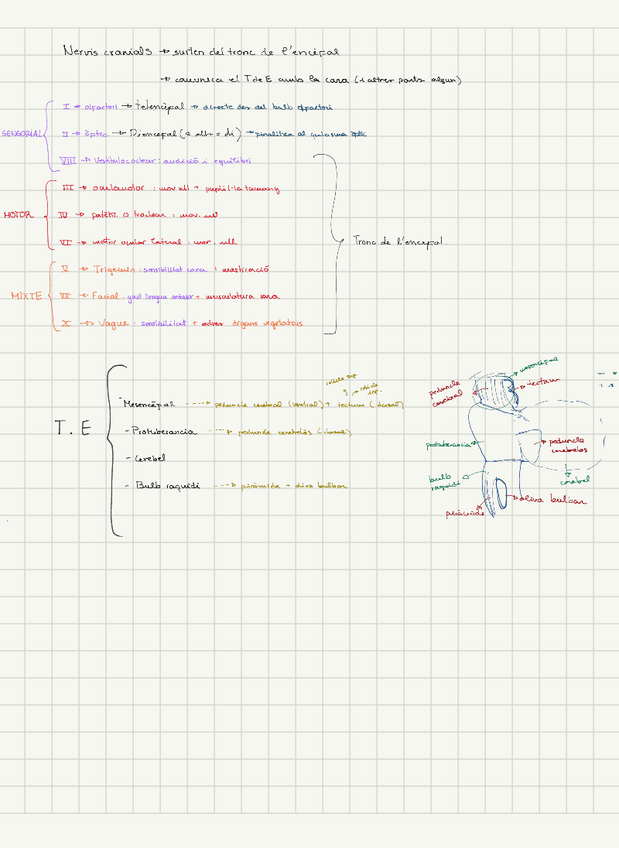 Nervis cranials → surten del tronc de l'encèfal
→ comunica el TdE amb la cara (i altres parts algun)
SENSORIAL
I → olfactori → telencèfal → directe des del bulb olfactori
II → òptic → Diencèfal (2 ulls = di) → òptic
VIII → Vestibulococlear: audició i equilibri
MOTOR
III → oculomotor : mov. ull + pupil·la
IV → patètic o troclear : mov. ull
VI → motor ocular lateral : mov. ull
MIXTE
V → Trigemin : sensibilitat cara + masticació
VII → Facial : gust llengua anterior + musculatura cara
X → Vague : sensibilitat + òrgans vegetatius
Tronc de l'encèfal
T. E
Mesencèfal ----→ peduncle cerebral (ventral) + tectum (dorsal)
- Protuberancia ---→ peduncle cerebelós (dorsal)
- Cerebel
- Bulb raquidi ---→ piràmide + oliva bulbar
mesencèfal
peduncle cerebral
tectum
protuberancia
peduncle cerebelós
cerebel
bulb raquidi
oliva bulbar
piràmide